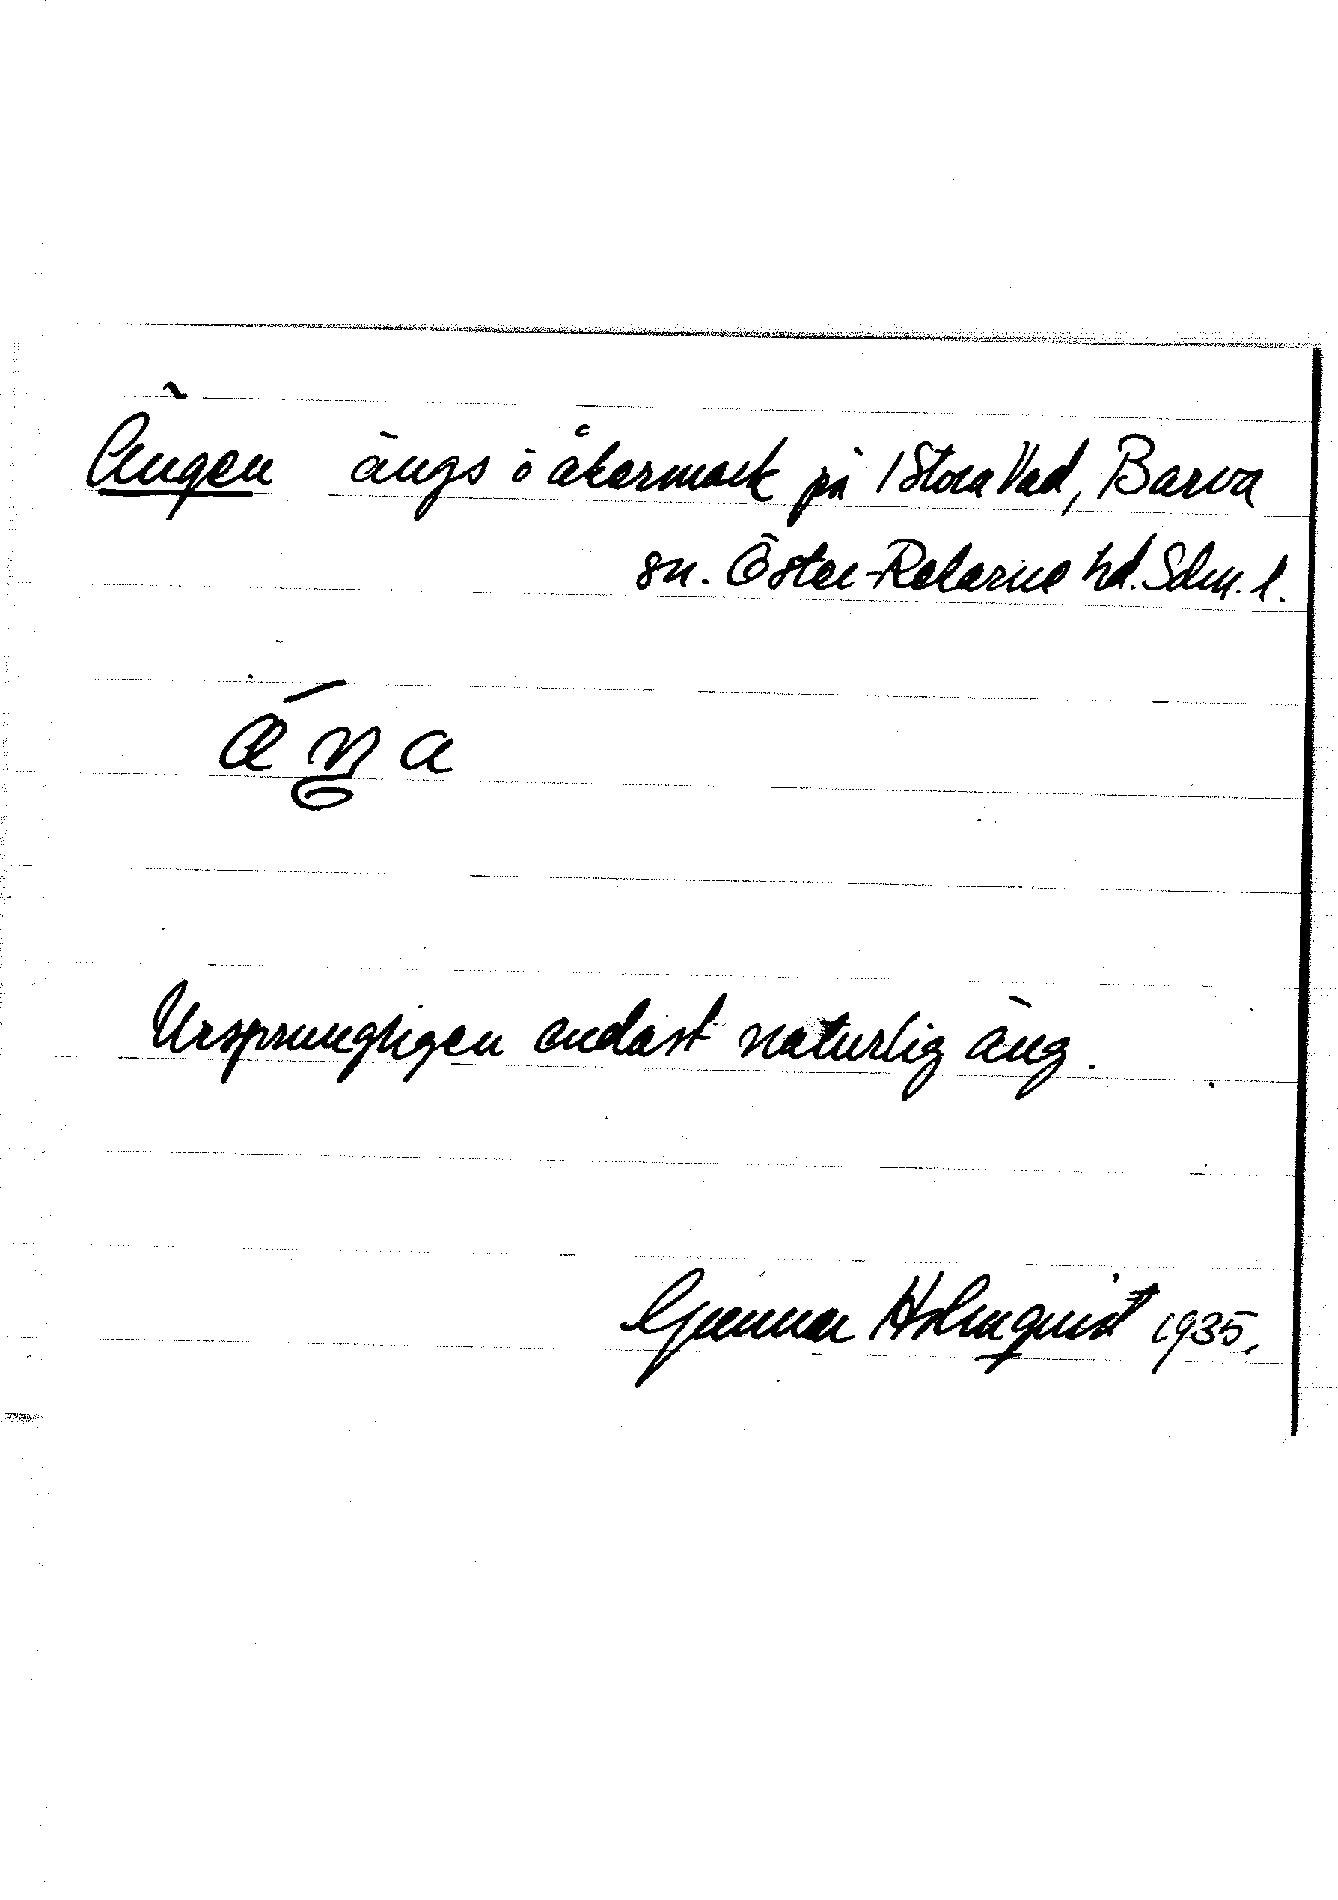 Ängen ängs o åkermark på 1 Stora Vad, Barva
sn. Öster-Rekarne hd. Sdm. l.
Ursprungligen endast naturlig äng.
Gunnar Holmquist 1935.